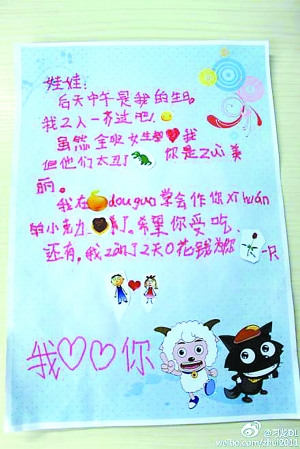 娃娃:
后天中午是我的生日,
我2人一齐过吧!
虽然全 女生都❤我
但他们太丑了 你是 心美
丽。
我在 douguo学会作你xǐ huán
的小 力 了。希望你爱吃
还有,我 了2天0花钱为你 一只
我♡♡你
weibo.com/zhui2011